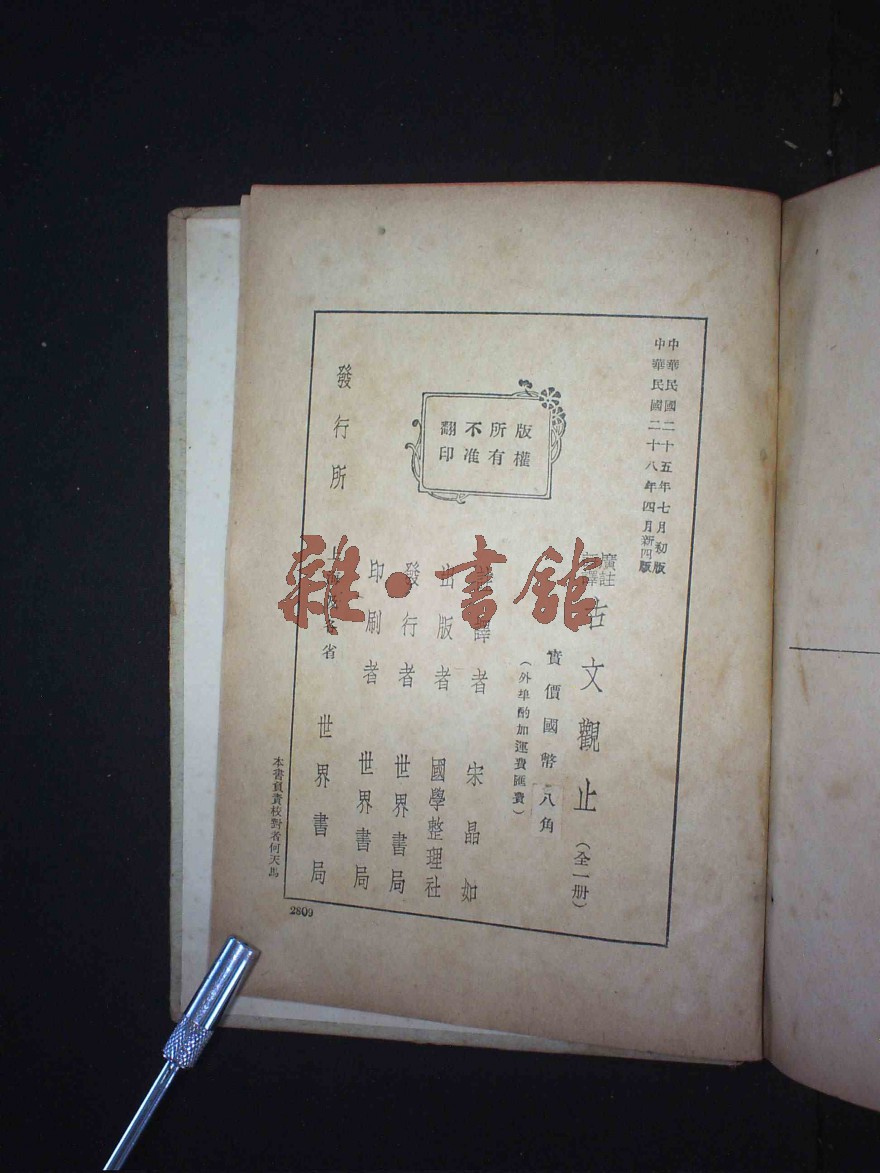 中華民國二十五年七月初版
中華民國二十八年四月新四版
廣註
譯
古文觀止（全一册）
實價國幣八角
（外埠酌加運費匯費）
版權
所有
不准
翻印
譯者 宋晶如
出版者 國學整理社
發行者 世界書局
印刷者 世界書局
發行所 上海及各省 世界書局
本書負責校對者何天馬
2809
雜·書館